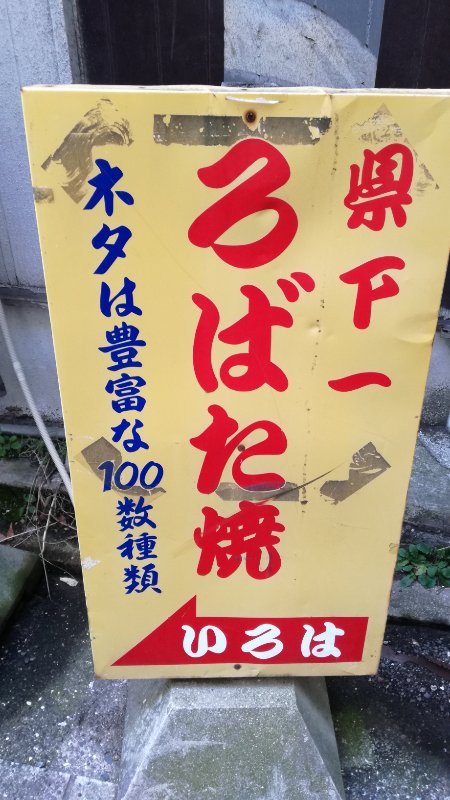 県下一
ろばた焼
ネタは豊富な100数種類
いろは